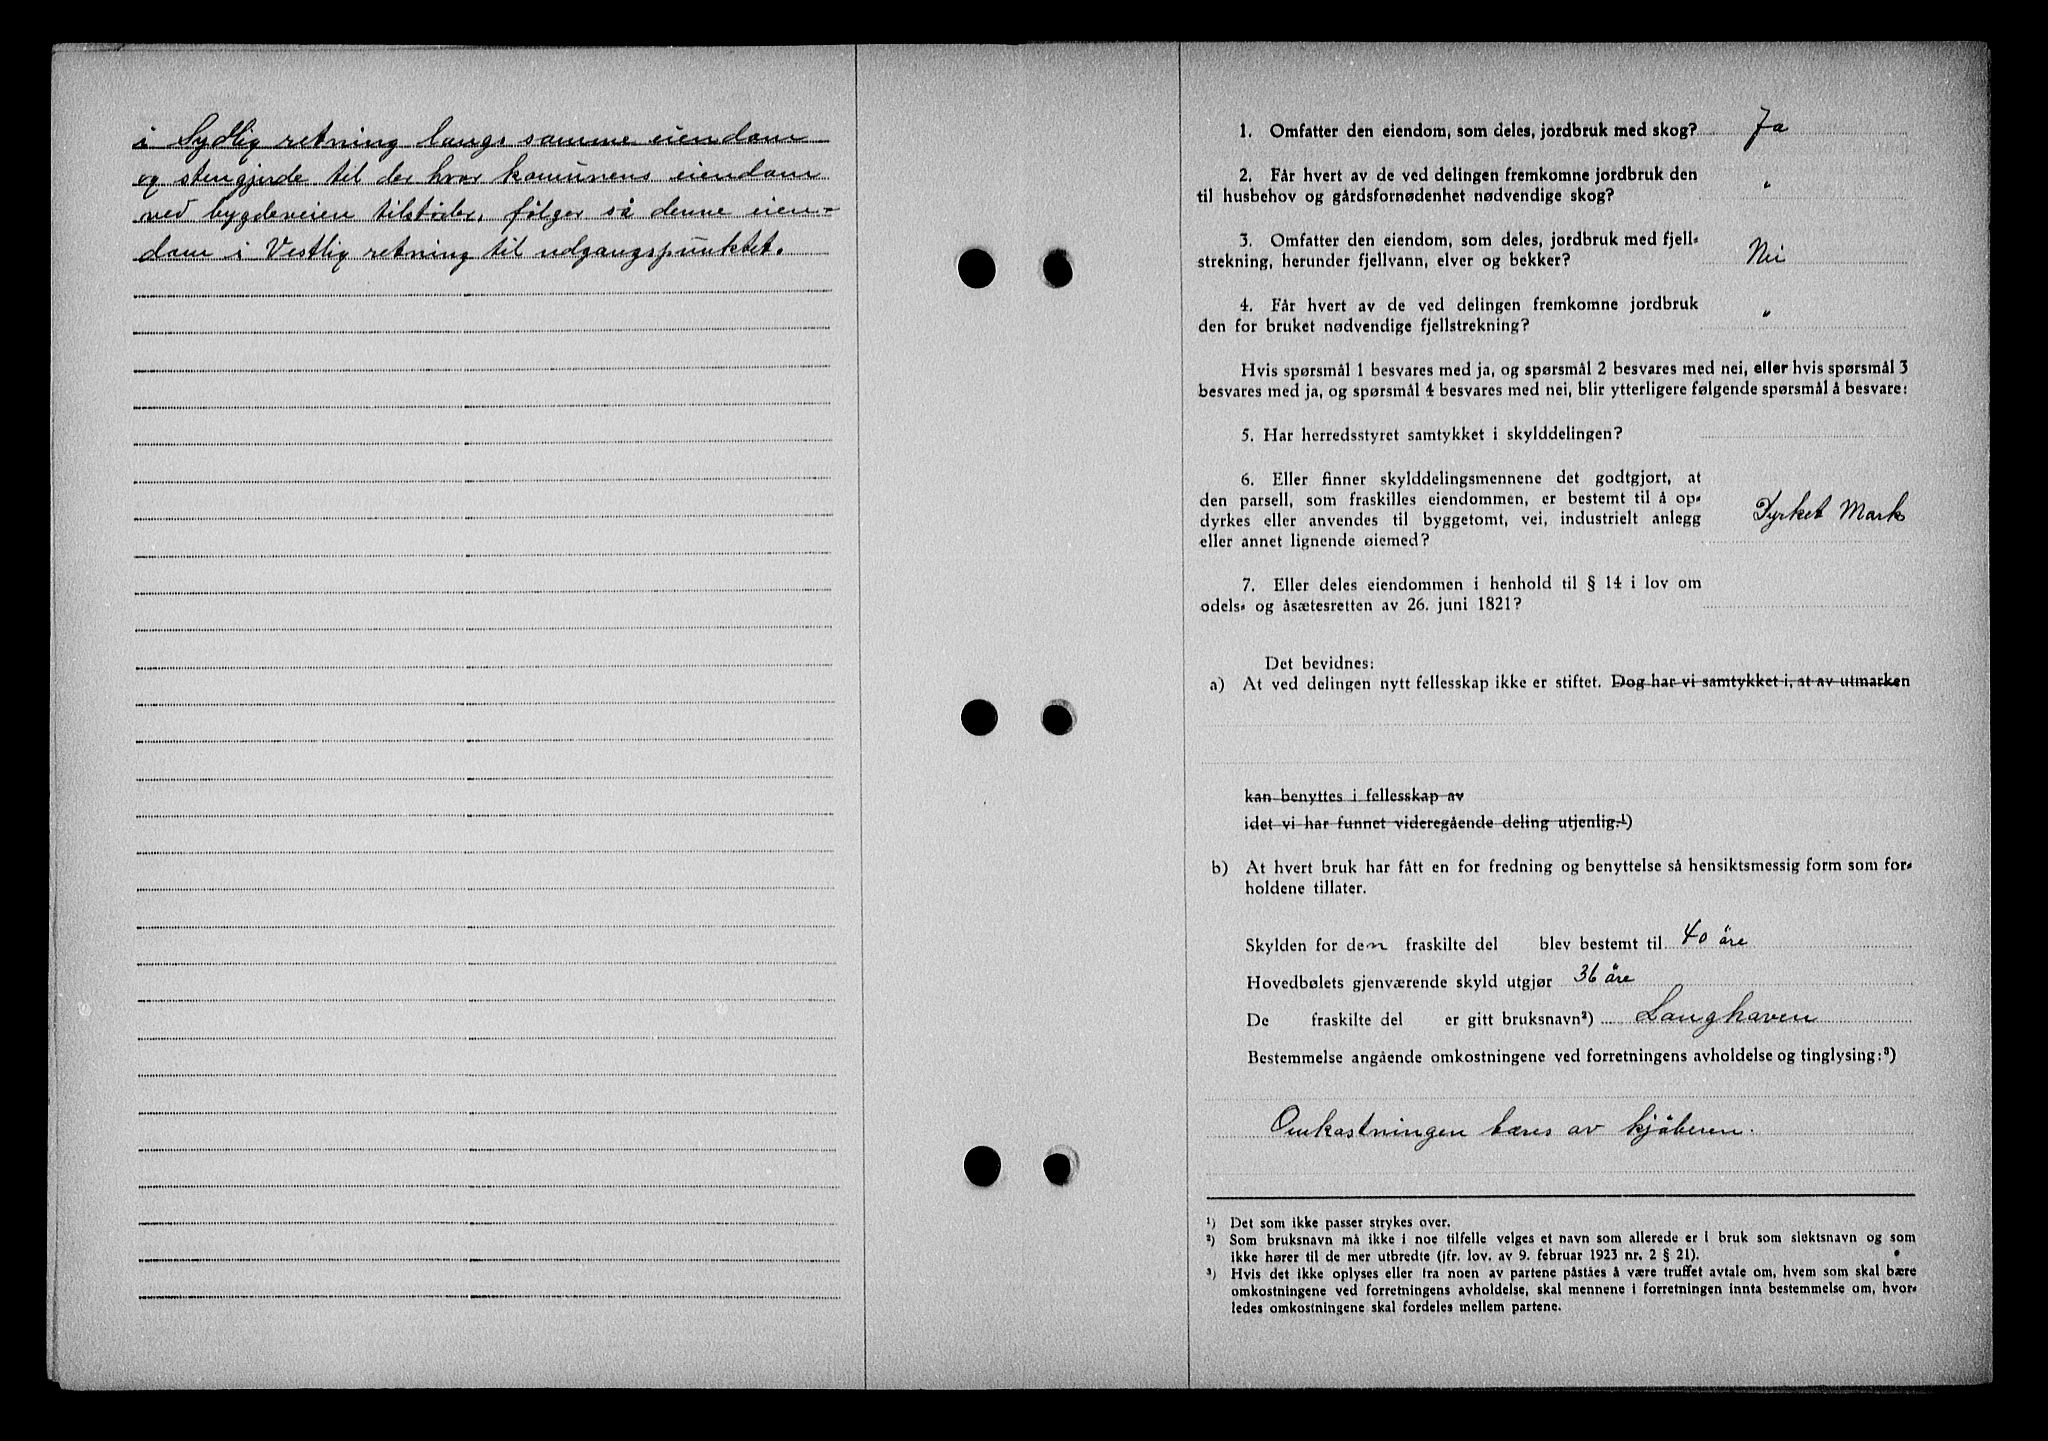 i Sydlig retning langs samme eiendom
og stengjerde til der hvor komunens eiendom
ved bygdeveien tilstøder, følger så denne eien-
dom i Vestlig retning til udgangspunktet.
1. Omfatter den eiendom, som deles, jordbruk med skog? Ja
2. Får hvert av de ved delingen fremkomne jordbruk den
til husbehov og gårdsfornødenhet nødvendige skog? "
3. Omfatter den eiendom, som deles, jordbruk med fjell-
strekning, herunder fjellvann, elver og bekker? Nei
4. Får hvert av de ved delingen fremkomne jordbruk
den for bruket nødvendige fjellstrekning? "
Hvis spørsmål 1 besvares med ja, og spørsmål 2 besvares med nei, eller hvis spørsmål 3
besvares med ja, og spørsmål 4 besvares med nei, blir ytterligere følgende spørsmål å besvare:
5. Har herredsstyret samtykket i skylddelingen?
6. Eller finner skylddelingsmennene det godtgjort, at
den parsell, som fraskilles eiendommen, er bestemt til å op-
dyrkes eller anvendes til byggetomt, vei, industrielt anlegg Dyrket Mark
eller annet lignende øiemed?
7. Eller deles eiendommen i henhold til § 14 i lov om
odels- og åsætesretten av 26. juni 1821?
Det bevidnes:
a) At ved delingen nytt fellesskap ikke er stiftet. Dog har vi samtykket i, at av utmarken
kan benyttes i fellesskap av
idet vi har funnet videregående deling utjenlig.¹)
b) At hvert bruk har fått en for fredning og benyttelse så hensiktsmessig form som for-
holdene tillater.
Skylden for den fraskilte del blev bestemt til 40 øre
Hovedbølets gjenværende skyld utgjør 36 øre
De fraskilte del er gitt bruksnavn²) Langhaven
Bestemmelse angående omkostningene ved forretningens avholdelse og tinglysing:³)
Omkostningen bæres av kjøberen.
¹) Det som ikke passer strykes over.
²) Som bruksnavn må ikke i noe tilfelle velges et navn som allerede er i bruk som slektsnavn og som
ikke hører til de mer utbredte (jfr. lov. av 9. februar 1923 nr. 2 § 21).
³) Hvis det ikke oplyses eller fra noen av partene påståes å være truffet avtale om, hvem som skal bære
omkostningene ved forretningens avholdelse, skal mennene i forretningen innta bestemmelse om, hvor-
ledes omkostningene skal fordeles mellem partene.